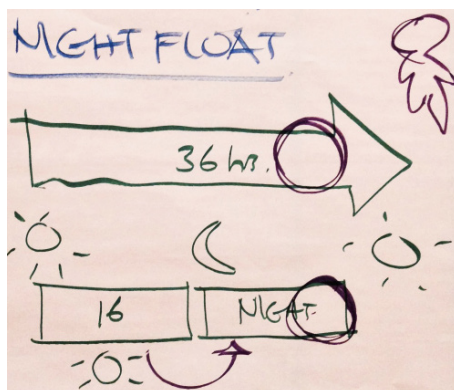 NIGHT FLOAT
36 hrs.
16
NIGHT